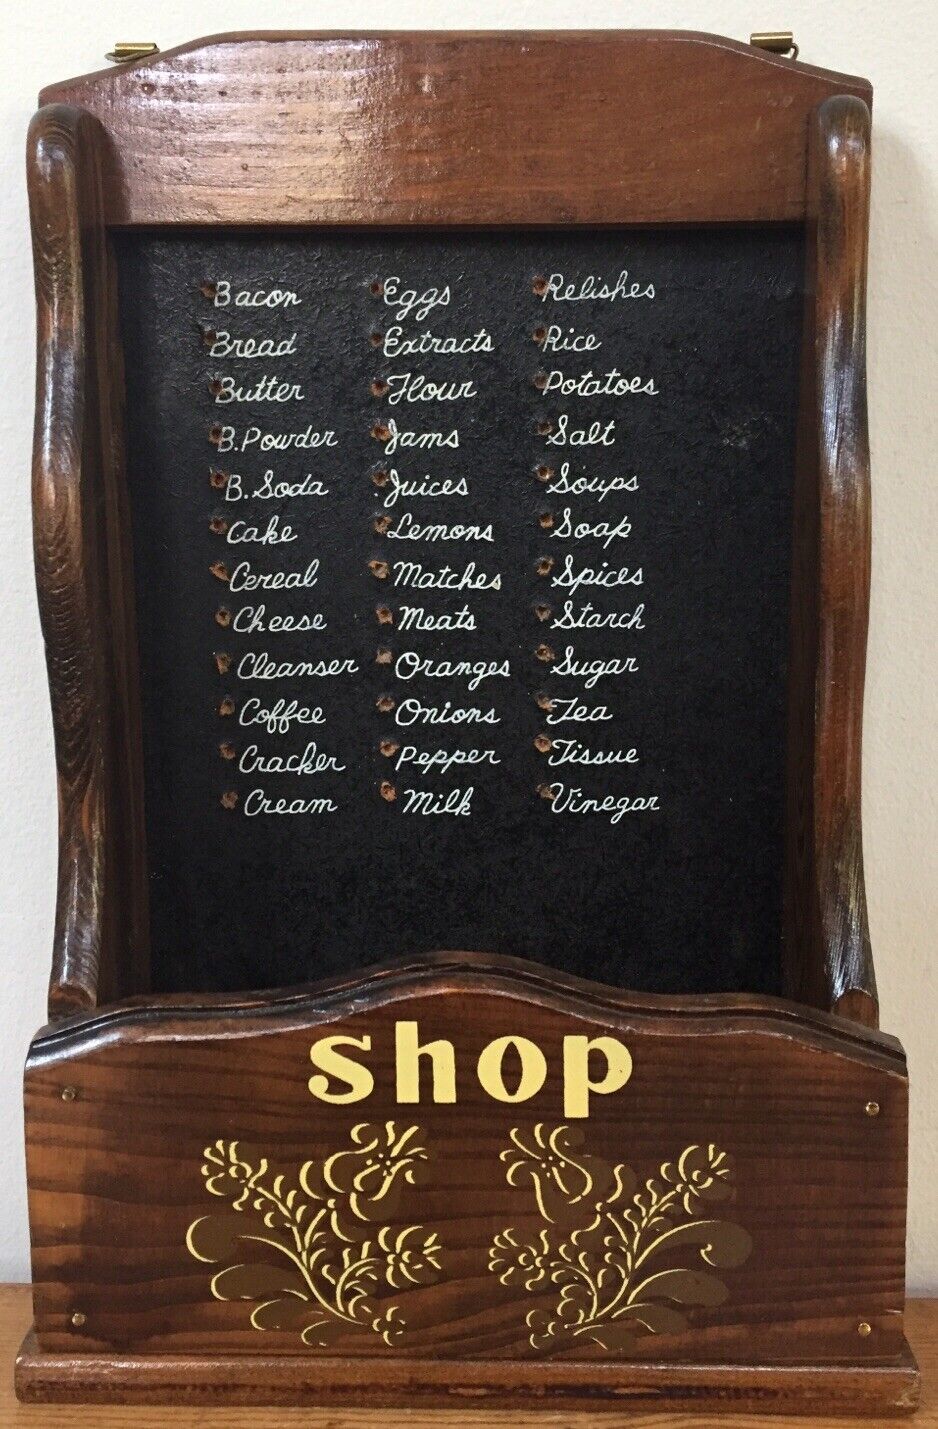 Bacon
Bread
Butter
B. Powder
B. Soda
Cake
Cereal
Cheese
Cleanser
Coffee
Cracker
Cream
Eggs
Extracts
Flour
Jams
Juices
Lemons
Matches
Meats
Oranges
Onions
Pepper
Milk
Relishes
Rice
Potatoes
Salt
Soups
Soap
Spices
Starch
Sugar
Tea
Tissue
Vinegar
shop